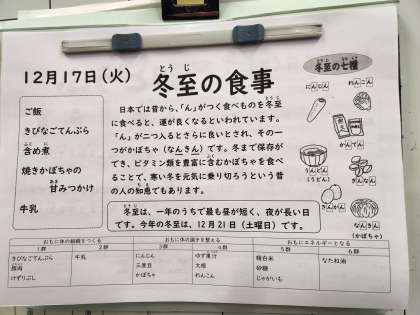 12月17日(火)
とう じ
冬至の食事
ご飯
きびなごてんぷら
ふく に
含め煮
焼きかぼちゃの
甘みつかけ
牛乳
日本では昔から、「ん」がつく食べものを冬至
に食べると、運が良くなるといわれています。
「ん」が二つ入るとさらに良いとされ、その一
つがかぼちゃ(なんきん)です。冬まで保存が
でき、ビタミン類を豊富に含むかぼちゃを食べ
ることで、寒い冬を元気に乗り切ろうという昔
の人の知恵でもあります。
冬至は、一年のうちで最も昼が短く、夜が長い日
です。今年の冬至は、12月21日(土曜日)です。
冬至の七種
にんじん
れんこん
かんてん
うんどん
(うどん)
ぎんなん
きんかん
なんきん
(かぼちゃ)
おもに体の組織をつくる
おもに体の調子を整える
おもにエネルギーとなる
1群
2群
3群
4群
5群
6群
きびなごてんぷら
鶏肉
けずりぶし
牛乳
にんじん
三度豆
かぼちゃ
ゆず果汁
大根
れんこん
精白米
砂糖
じゃがいも
なたね油